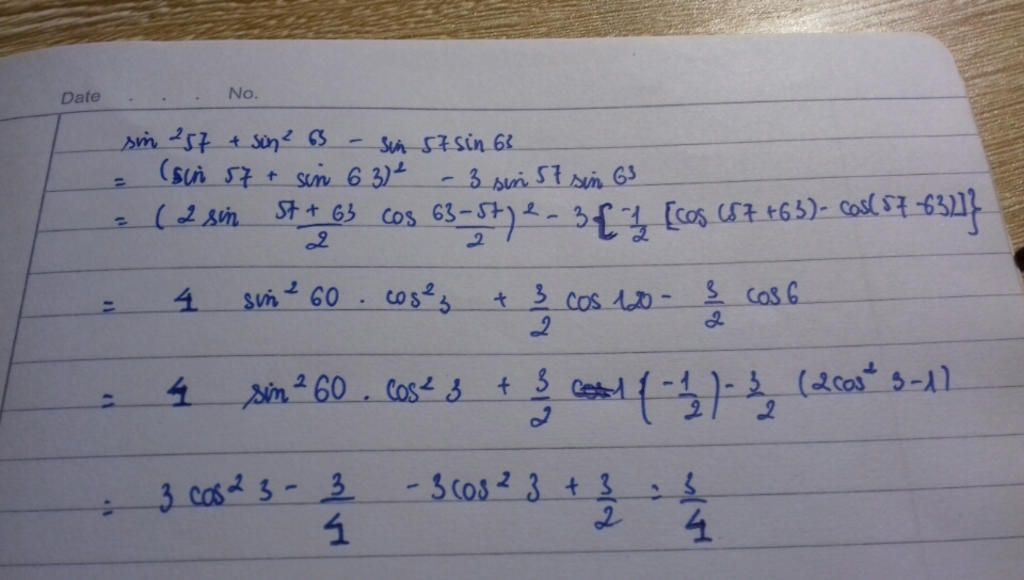 Date . . . No.
sin ²57 + sin² 63 - sin 57 sin 63
= (sin 57 + sin 63)² - 3 sin 57 sin 63
= (2 sin \frac{57 + 63}{2} cos \frac{63-57}{2})² - 3{\frac{-1}{2} [cos (57 +63) - cos(57 -63)]}
= 4 sin² 60 . cos² 3 + \frac{3}{2} cos 120 - \frac{3}{2} cos 6
= 4 sin² 60 . cos² 3 + \frac{3}{2} (-\frac{1}{2}) - \frac{3}{2} (2cos² 3 - 1)
= 3 cos² 3 - \frac{3}{4} - 3cos² 3 + \frac{3}{2} = \frac{3}{4}